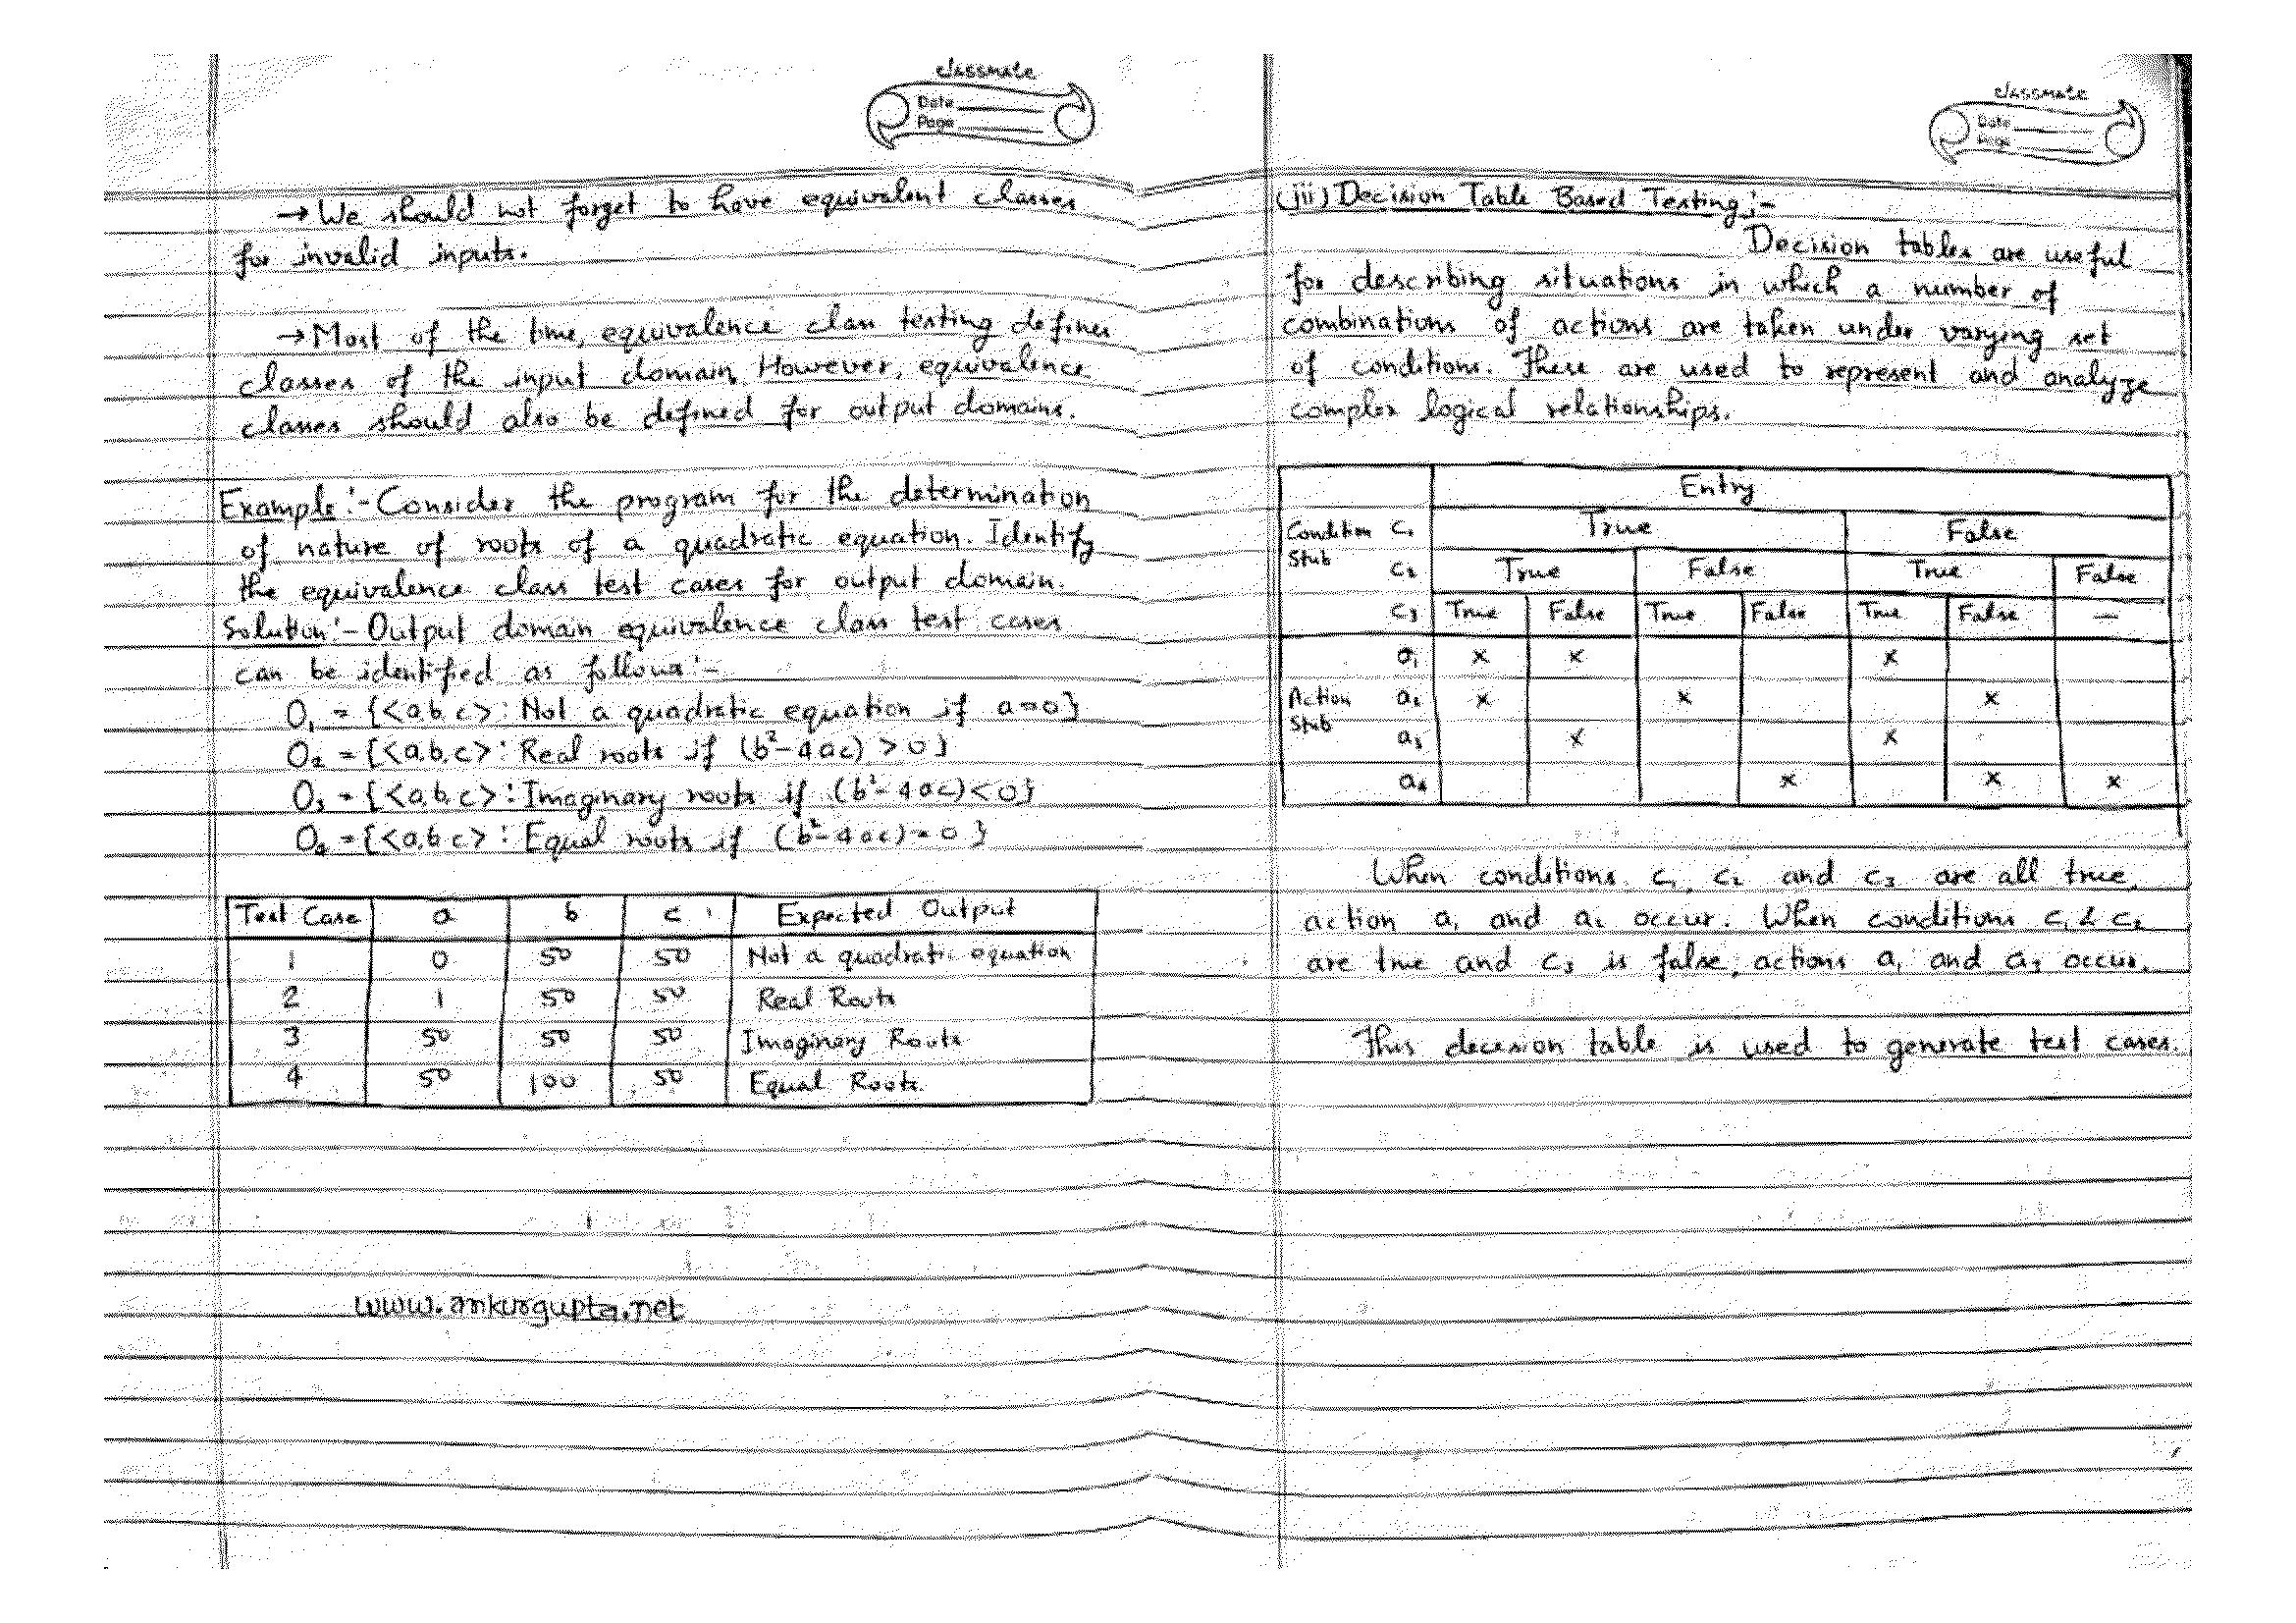 classmate
Date
Page
→ We should not forget to have equivalent classes
for invalid inputs.
→ Most of the time, equivalence class testing defines
classes of the input domain. However, equivalence
classes should also be defined for output domains.
Example:- Consider the program for the determination
of nature of roots of a quadratic equation. Identify
the equivalence class test cases for output domain.
Solution:- Output domain equivalence class test cases
can be identified as follows:-
O₁ = {<a,b,c>: Not a quadratic equation if a=0}
O₂ = {<a,b,c>: Real roots if (b²-4ac) > 0}
O₃ = {<a,b,c>: Imaginary roots if (b²-4ac) < 0}
O₄ = {<a,b,c>: Equal roots if (b²-4ac) = 0}
Test Case a b c Expected Output
1 0 50 50 Not a quadratic equation
2 1 50 50 Real Roots
3 50 50 50 Imaginary Roots
4 50 100 50 Equal Roots.
www.ankurgupta.net
classmate
Date
Page
(iii) Decision Table Based Testing:-
Decision tables are useful
for describing situations in which a number of
combinations of actions are taken under varying set
of conditions. These are used to represent and analyze
complex logical relationships.
Entry
Condition c₁ True False
Stub c₂ True False True False
c₃ True False True False True False —
a₁ x x x
Action a₂ x x x
Stub a₃ x x
a₄ x x x
When conditions c₁, c₂ and c₃ are all true,
action a₁ and a₂ occur. When conditions c₁ & c₂
are true and c₃ is false, actions a₁ and a₃ occur.
This decision table is used to generate test cases.